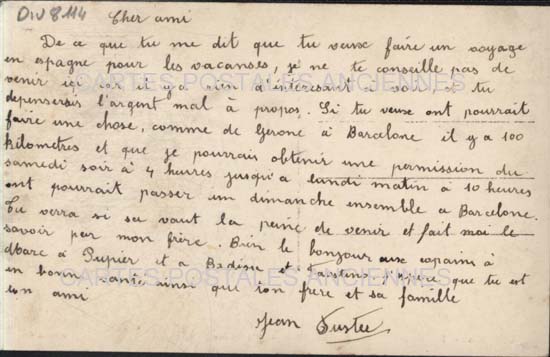 Div 8.114
Cher ami
De ce que tu me dit que tu veux faire un voyage
en espagne pour les vacanses, je ne te conseille pas de
venir içi car il y a rien d'interessant à voir et tu
depenserais l'argent mal à propos. Si tu veux ont pourrait
faire une chose, comme de Gerone à Barcelone il y a 100
kilometres et que je pourrais obtenir une permission du
samedi soir à 4 heures jusqu'a lundi matin à 10 heures
ont pourrait passer un dimanche ensemble a Barcelone.
Tu verra si sa vaut la peine de venir et fait moi le
savoir par mon frère. Bien le bonjour aux copains à
à Pupier et a et j'espère que tu est
en bonne santé ainsi que ton frere et sa famille
ton ami
Jean
CARTES POSTALES ANCIENNES
CARTES POSTALES ANCIENNES